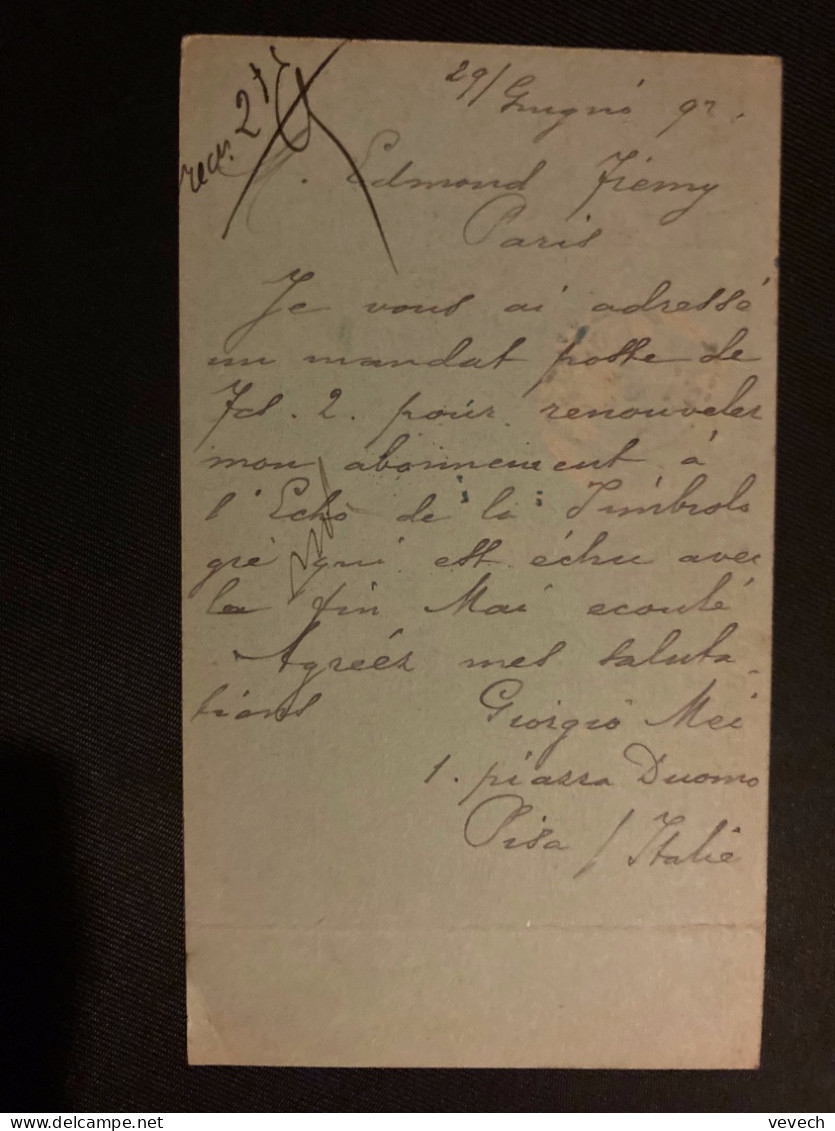 recu. 2
29/ Giugnó 92.
M. Edmond Frémy
Paris
Je vous ai adressé
un mandat poste de
Fcs. 2. pour renouveler
mon abonnement à
l'Echo de la Timbrolo
gie qui est échu avec
la fin Mai ecoulé
Agréez mes saluta
tions Giorgio Mei
1. piazza Duomo
Pisa / Italie
vevech